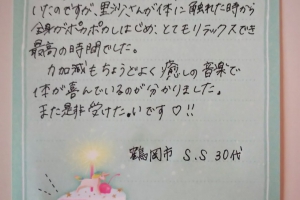 いたのですが、里沙さんが体に触れた時から
全身がポカポカしはじめ、とてもリラックスでき
最高の時間でした。
力加減もちょうどよく癒しの音楽で
体が喜んでいるのが分かりました。
また是非受けたいです♡!!
鶴岡市 S.S 30代